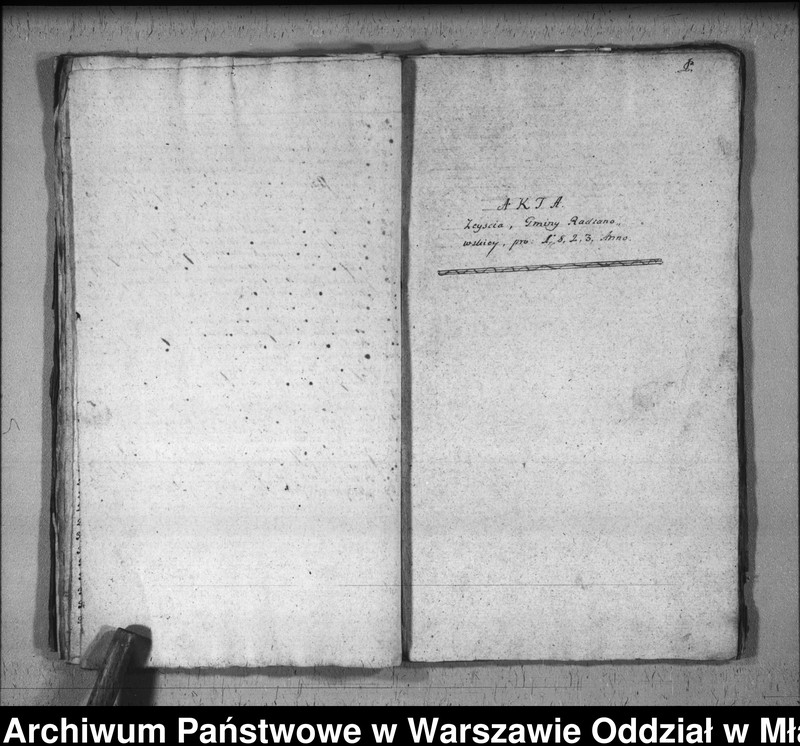 AKTA
Zeyscia, Gminy Radzano-
wskiey, pro: 1, 8, 2, 3, Anno
Archiwum Państwowe w Warszawie Oddział w Mła